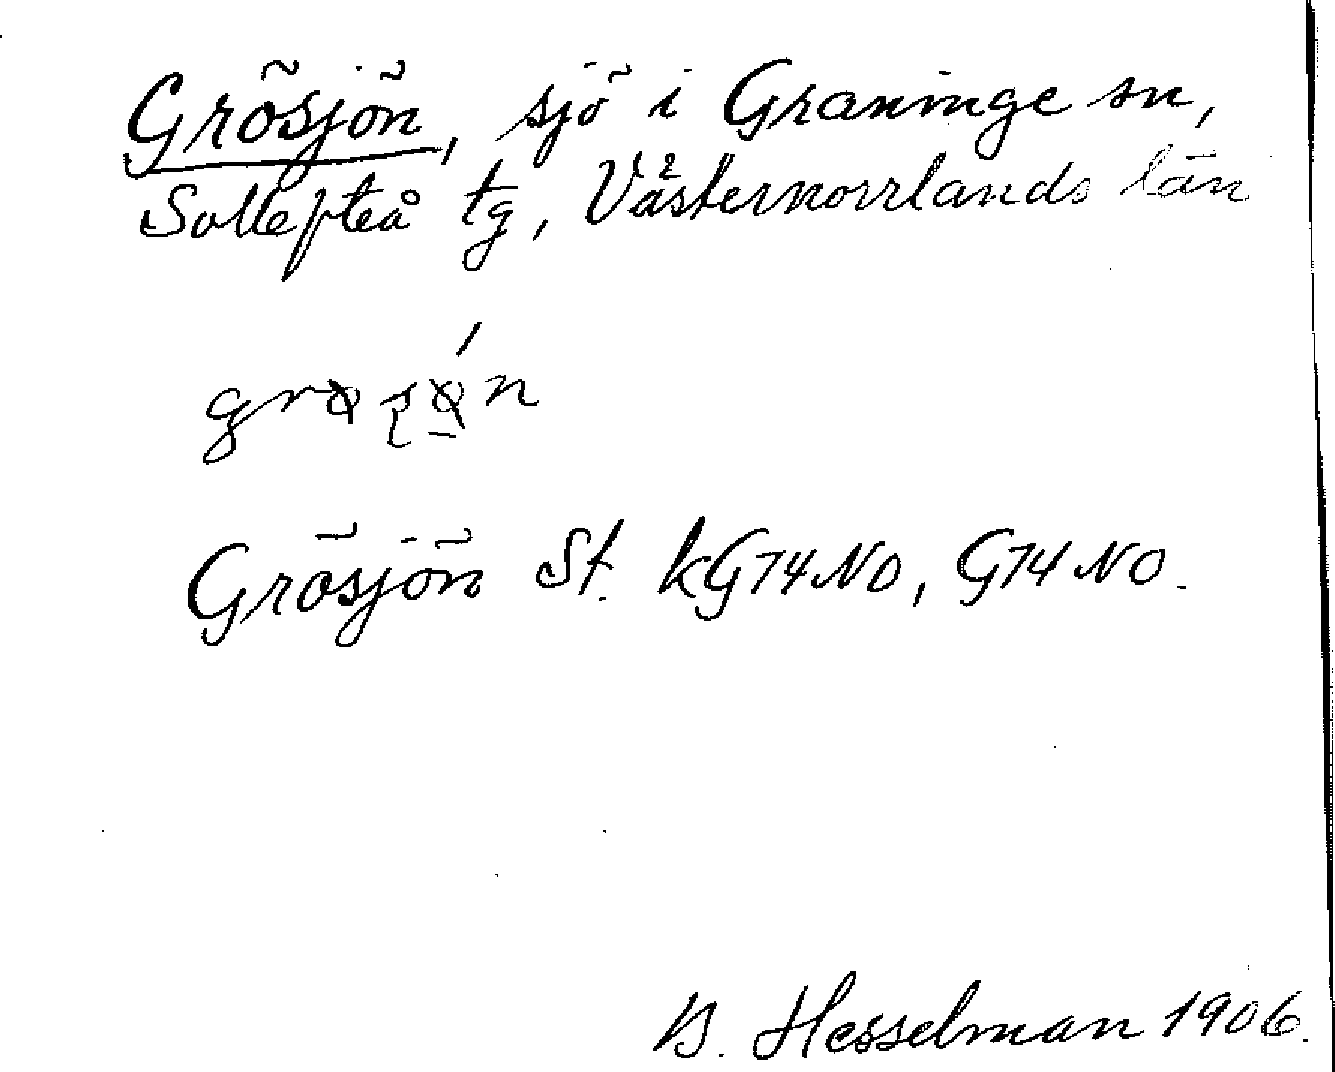 Grösjön, sjö i Graninge sn,
Sollefteå tg, Västernorrlands län
Grösjön St. kG74NO, G74NO.
B. Hesselman 1906.